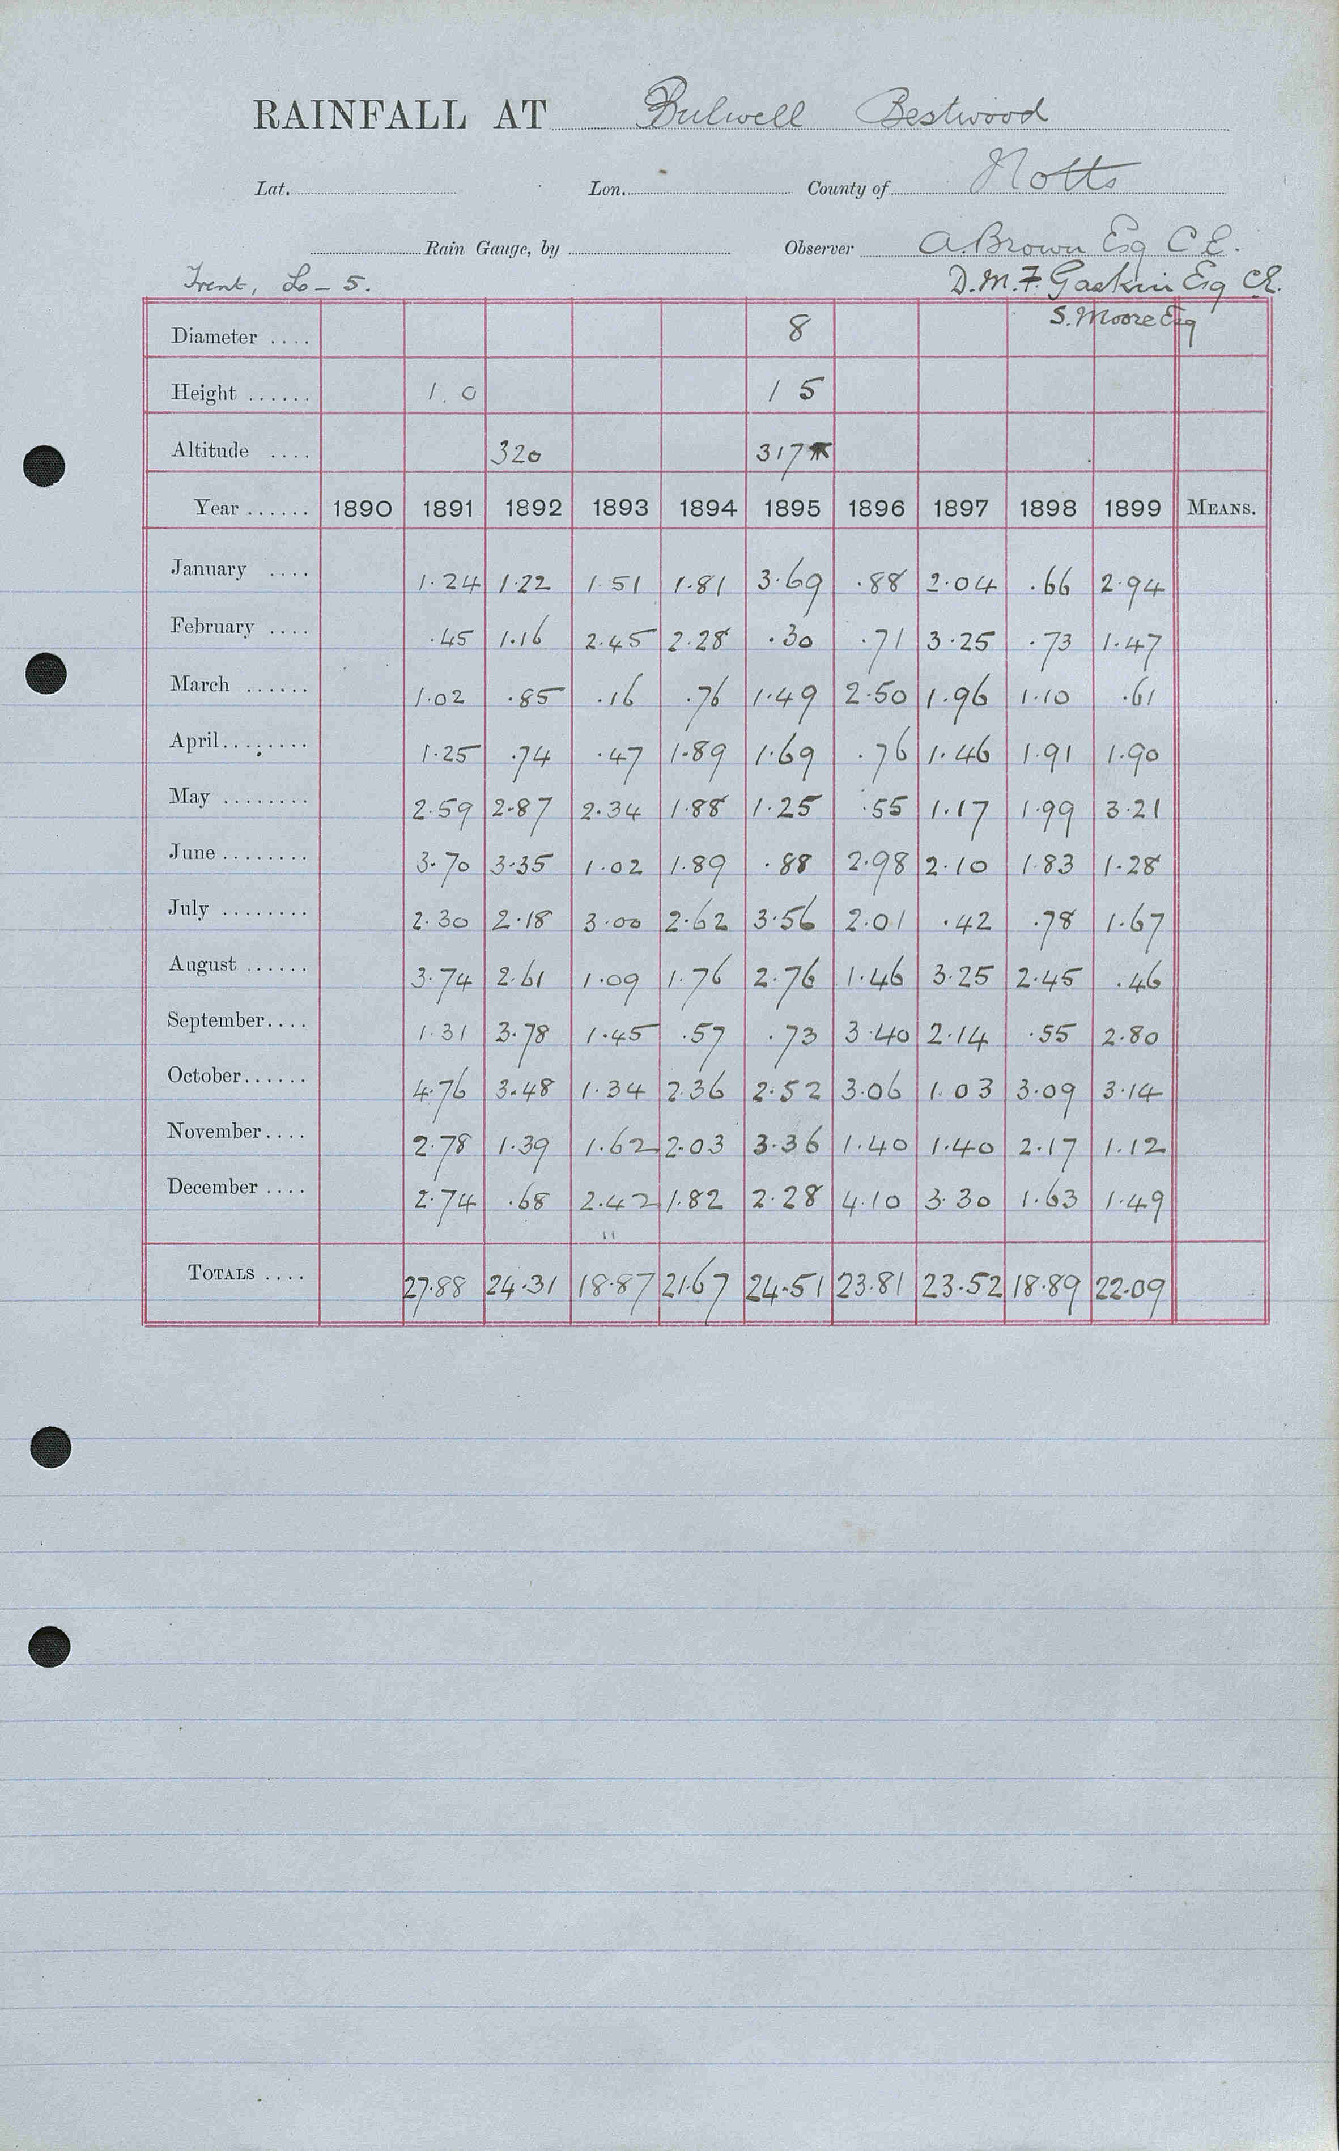 RAINFALL AT Bulwell Bestwood
Lat. Lon. County of Notts
Rain Gauge, by Observer A. Brown Esq C.E.
Trent, Lo - 5. D.M.F. Gaskin Esq C.E.
S. Moore Esq
Diameter .... 8
Height ...... 1 . 0 1 5
Altitude .... 320 317
Year ...... 1890 1891 1892 1893 1894 1895 1896 1897 1898 1899 MEANS.
January .... 1.24 1.22 1.51 1.81 3.69 .88 2.04 .66 2.94
February .... .45 1.16 2.45 2.28 .30 .71 3.25 .73 1.47
March ...... 1.02 .85 .16 .76 1.49 2.50 1.96 1.10 .61
April ........ 1.25 .74 .47 1.89 1.69 .76 1.46 1.91 1.90
May ........ 2.59 2.87 2.34 1.88 1.25 .55 1.17 1.99 3.21
June ........ 3.70 3.35 1.02 1.89 .88 2.98 2.10 1.83 1.28
July ........ 2.30 2.18 3.00 2.62 3.56 2.01 .42 .78 1.67
August ...... 3.74 2.61 1.09 1.76 2.76 1.46 3.25 2.45 .46
September.... 1.31 3.78 1.45 .57 .73 3.40 2.14 .55 2.80
October...... 4.76 3.48 1.34 2.36 2.52 3.06 1.03 3.09 3.14
November.... 2.78 1.39 1.62 2.03 3.36 1.40 1.40 2.17 1.12
December .... 2.74 .68 2.42 1.82 2.28 4.10 3.30 1.63 1.49
TOTALS .... 27.88 24.31 18.87 21.67 24.51 23.81 23.52 18.89 22.09